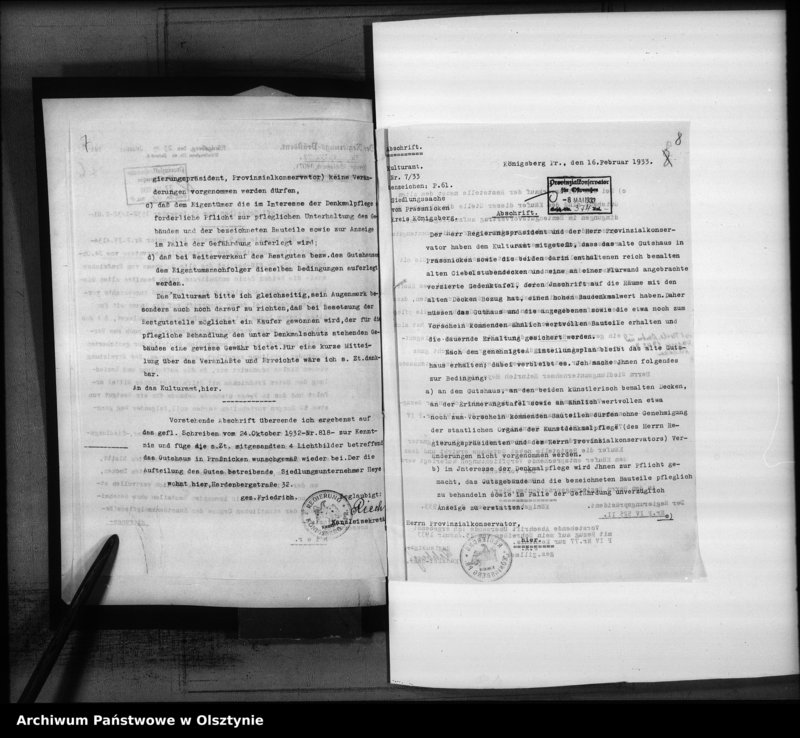 7
gierungspräsident, Provinzialkonservator) keine Verän-
derungen vorgenommen werden dürfen,
c) daß dem Eigentümer die im Interesse der Denkmalpflege e
forderliche Pflicht zur pfleglichen Unterhaltung des Ge
bäudes und der bezeichneten Bauteile sowie zur Anzeige
im Falle der Gefährdung auferlegt wird;
d) daß bei Weiterverkauf des Restgutes bezw.des Gutshauses
dem Eigentumsnachfolger dieselben Bedingungen auferlegt
werden.
Das Kulturamt bitte ich gleichzeitig,sein Augenmerk be-
sonders auch noch darauf zu richten,daß bei Besetzung der
Restgutstelle möglichst ein Käufer gewonnen wird,der für die
pflegliche Behandlung des unter Denkmalschutz stehenden Ge-
bäudes eine gewisse Gewähr bietet.Für eine kurze Mittei-
lung über das Veranlaßte und Erreichte wäre ich s. Zt.dank-
bar.
An das Kulturamt,hier.
Vorstehende Abschrift übersende ich ergebenst auf
das gefl. Schreiben vom 24.Oktober 1932-Nr.818- zur Kennt-
nis und füge die s.Zt. mitgesandten 4 Lichtbilder betreffend
das Gutshaus in Praßnicken wunschgemäß wieder bei.Der die
Aufteilung des Gutes betreibende Siedlungsunternehmer Heye
wohnt hier,Hardenbergstraße 32.
gez.Friedrich.
Beglaubigt:
Kanzleisekretä
8
Abschrift.
Kulturamt.
Nr. 7/33
enzeichen: P.61.
Siedlungssache
von Prassnicken
Kreis Königsberg.
Königsberg Pr., den 16.Februar 1933.
Provinzialkonservator
für Ostpreußen
-8 MAI 1933
Abschrift.
Der Herr Regierungspräsident und der Herr Provinzialkonser-
vator haben dem Kulturamt mitgeteilt, dass das alte Gutshaus in
Prassnicken sowie die beiden darin enthaltenen reich bemalten
alten Giebelstubendecken und eine an einer Flurwand angebrachte
verzierte Gedenktafel, deren Jnschrift auf die Räume mit den
alten Decken Bezug hat, einen hohen Baudenkmalwert haben.Daher
müssen das Gutshaus und die angegebenen sowie die etwa noch zum
Vorschein kommenden ähnlich wertvollen Bauteile erhalten und
die dauernde Erhaltung gesichert werden.
Nach dem genehmigten Einteilungsplan bleibt das alte Guts-
haus erhalten; dabei verbleibt es. Jch mache Jhnen folgendes
zur Bedingung:
a) an dem Gutshaus, an den beiden künstlerisch bemalten Decken,
an der Erinnerungstafel sowie an ähnlich wertvollen etwa
noch zum Vorschein kommenden Bauteilen dürfen ohne Genehmigung
der staatlichen Organe der Kunstdenkmalpflege (des Herrn Re-
gierungspräsidenten und des Herrn Provinzialkonservators) Ver-
änderungen nicht vorgenommen werden.
b) im Jnteresse der Denkmalpflege wird Jhnen zur Pflicht ge-
macht, das Gutsgebäude und die bezeichneten Bauteile pfleglich
zu behandeln sowie im Falle der Gefährdung unverzüglich
Anzeige zu erstatten.
c)
Herrn Provinzialkonservator,
hier.
Archiwum Państwowe w Olsztynie